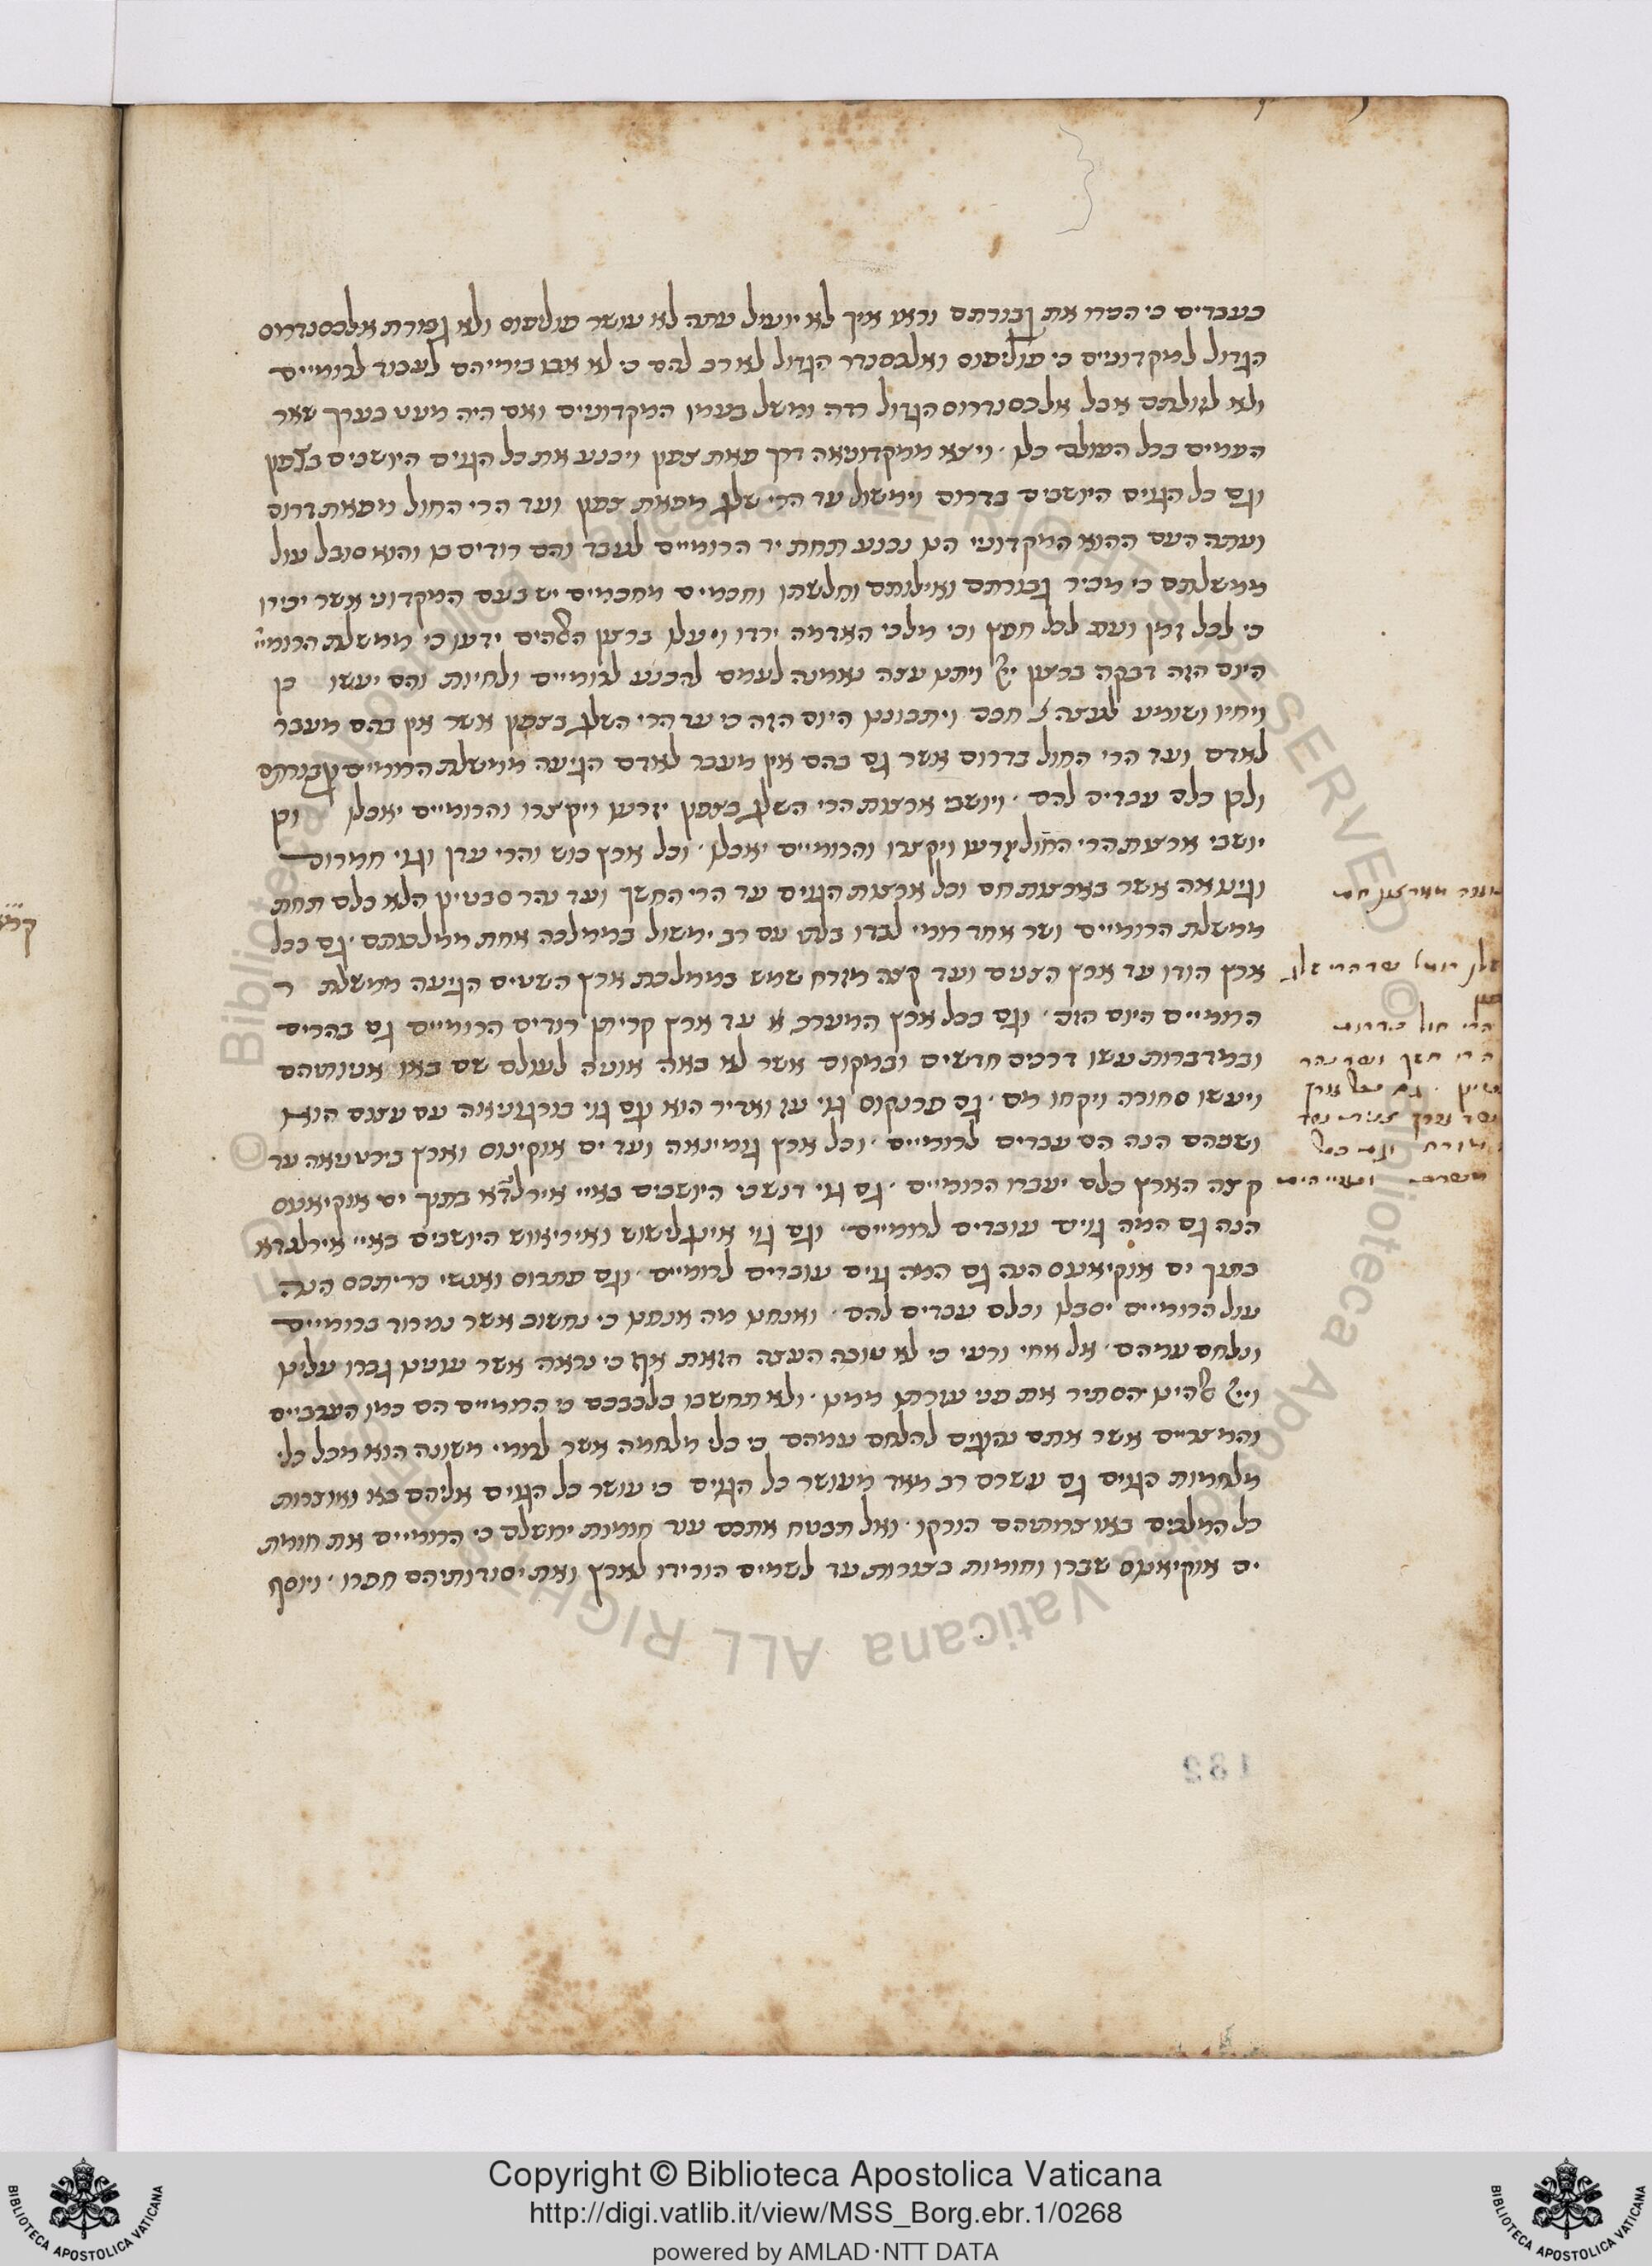 כעבדים כי הסרו את גבורתם וראו איך לא יועיל עתה לא עושר פוליפוס ולא גבורת אלכסנדרוס
הגדול למקדונים כי פוליפוס ואלכסנדר הגדול לא רב להם כי לא אבו בימיהם לעבוד לרומיים
ולא לזולתם אבל אלכסנדרוס הגדול רדה ומשל בעמון המקדונים ואם היה מעט בערך שאר
העמים בכל העולם כלו ויצא ממקדוניאה דרך פאת צפון ויכנע את כל הגוים היושבים בצפון
וגם כל הגוים היושבים בדרום וימשול עד הרי שלג מפאת צפון ועד הרי החול מפאת דרום
ועתה העם ההוא המקדוני הנו נכנע תחת יד הרומיים לעבד והם רודים בו והוא סובל עול
ממשלתם כי מכיר גבורתם ואילותם וחלשתו וחכמים מחכמים יש בעם המקדוני אשר יכירו
כי לכל זמן ועת לכל חפץ וכי מלכי האדמה ירדו ויעלו ברצון האלהים ידעו כי ממשלת הרומיי'
היום הזה דבקה ברצון ויתנו עצה נאמנה לעמם להכנע לרומיים ולחיות והם יעשו כן
ויחיו ושומע לעצה חכם ויתבוננו היום הזה כי עד הרי השלג בצפון אשר אין בהם מעבר
לאדם ועד הרי החול בדרום אשר גם בהם אין מעבר לאדם הגיעה ממשלת הרומיים בגבורתם
ולכן כלם עבדים להם ויושבי ארצות הרי השלג בצפון יזרעו ויקצרו והרומיים יאכלו וכן
יושבי ארצות הרי החול יזרעו ויקצרו והרומיים יאכלו וכל ארץ כוש והרי עדן וגוי חמרום
אשר בארצות חם וכל ארצות הגוים עד הרי החשך ועד נהר סבטיון הלא כלם תחת
ממשלת הרומיים ושר אחד רומי לבדו בלתי עם רב ימשול בממלכה אחת ממלכתם גם בכל
ארץ הודו עד ארץ הצעם ועד קצה מזרח שמש בממלכת ארץ השטים הגיעה ממשלת ר
הרומיים היום הזה וגם בכל ארץ המערב א עד ארץ קריתן רודים הרומיים גם בהרים
ובמדברות עשו דרכים חדשים ובמקום אשר לא באה אוניה לעולם שם באו אוניותיהם
ויעשו סחורה ויקחו מס גם פרנקוס גוי עז ואדיר הוא וגם גוי בורגוניאה עם עצום הוא
ושניהם הנה הם עבדים לרומיים וכל ארץ גומינאה ועד ים אוקינוס וארץ ביריטניאה עד
קצה הארץ כלם יעבדו הרומיים גם גוי דנשטי היושבים באיי אירלנדא בתוך ים אוקיאנוס
הנה גם המה גוים עובדים לרומיים וגם גוי אינגלישוש ואיריזווש היושבים באיי אירלנדא
בתוך ים אוקיאנוס הנה גם המה גוים עובדים לרומיים וגם פתרוס ואנשי כריתכס הנה
עול הרומיים יסבלו וכלם עבדים להם ואנחנו מה אנחנו כי נחשוב אשר נמרוד ברומיים
ונלחם עמהם אל אחי ורעי כי לא טובה העצה הזאת אף כי נראה אשר עונינו גברו עלינו
וייי אלהינו הסתיר את פני עזרתו ממנו ולא תחשבו בלבבכם כי הרומיים הם כמו הערביים
והמצריים אשר אתם נהוגים להלחם עמהם כי כלי מלחמה אשר לרומי משונה הוא מכל כלי
מלחמות הגוים גם עשרם רב מאד מעושר כל הגוים כי עושר כל הגוים אליהם בא ואוצרות
כל המלכים באוצרותיהם הורקו ואל תבטח אתכם עוד חומות ירושלם כי הרומיים את חומת
ים אוקיאנוס שברו וחומות בצורות עד לשמים הורידו לארץ ואת יסודותיהם חפרו ויוסף
132
Copyright © Biblioteca Apostolica Vaticana
http://digi.vatlib.it/view/MSS_Borg.ebr.1/0268
powered by AMLAD·NTT DATA